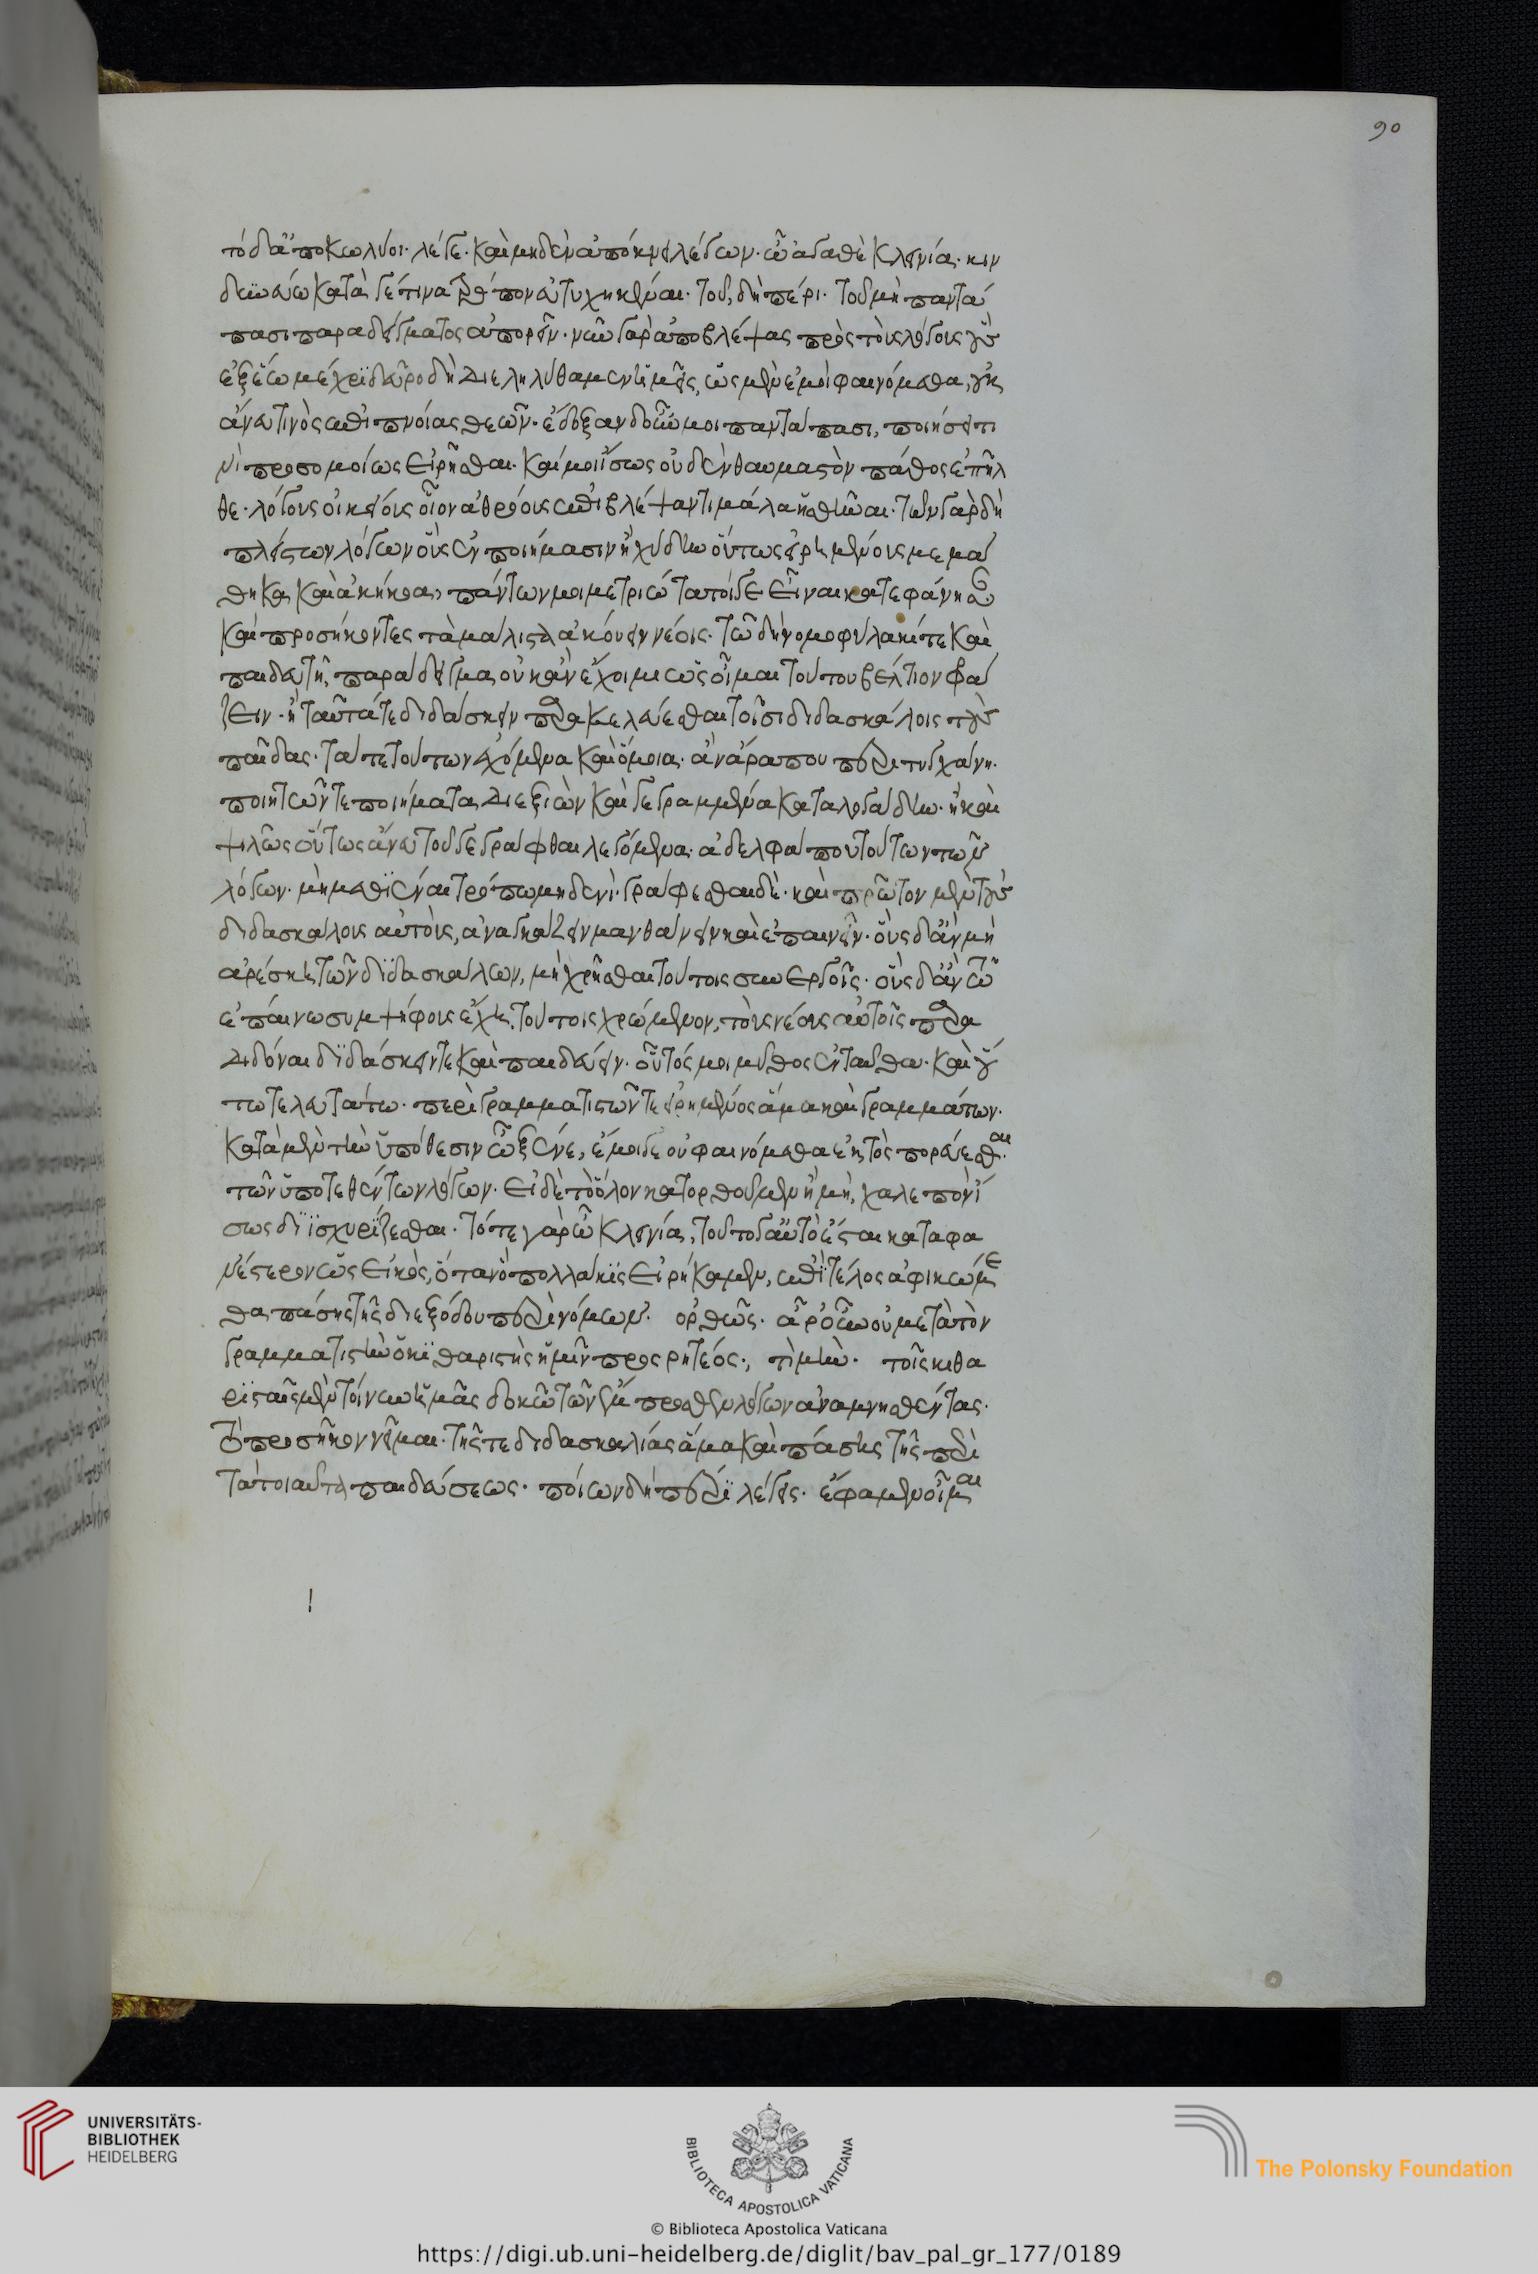 90
τό δι᾽ ἅπο κωλύοι· λέγε· καὶ μηδὲν ἀπόκνει λέγων· ὦ ἀγαθὲ κλεινία· κιν
δυνεύω κατά γέ τινα τρόπον εὐτυχηκέναι· τοῦ, δὴ πέρι· τοῦ μὴ παντά
πασι παραδείγματος ἀπορεῖν· νῦν γὰρ ἀποβλέψας πρὸς τοὺς λόγους οὓς
ἐξ ἕω μέχρι δεῦρο δὴ διεληλύθαμεν ἡμεῖς, ὡς μὲν ἐμοὶ φαινόμεθα, οὐκ
ἄνευ τινὸς ἐπιπνοίας θεῶν· ἔδοξαν δοὖν μοι παντάπασι, ποιήσει τι
νὶ προσομοίως εἰρῆσθαι· καί μοι ἴσως οὐδὲν θαυμαστὸν πάθος ἐπῆλ
θε· λόγους οἰκείους οἷον ἀθρόους ἐπιβλέψαντι μάλα ἡσθῆναι· τῶν γὰρ δὴ
πλείστων λόγων οὓς ἐν ποιήμασιν ἢ χύδην οὕτως εἰρημένους μεμά
θηκα καὶ ἀκήκοα, πάντων μοι μετριώτατοί γε εἶναι κατεφάνησαν
καὶ προσήκοντες τὰ μάλιστα ἀκούειν νέοις· τῶ δὴ νομοφύλακί τε καὶ
παιδευτῆ, παράδειγμα οὐκ ἂν ἔχοιμι ὡς οἶμαι τούτου βέλτιον φρά
ζειν· ἢ ταῦτά τε διδάσκειν παρακελεύεσθαι τοῖσι διδασκάλοις τοὺς
παῖδας· τά τε τούτων ἐχόμενα καὶ ὅμοια· ἂν ἄρα που περιτυγχάνη·
ποιητῶν τε ποιήματα διεξιὼν καὶ γεγραμμένα καταλογάδην· ἢ καὶ
ψιλῶς οὕτως ἄνευ τοῦ γεγράφθαι λεγόμενα· ἀδελφά που τούτων τῶν
λόγων· μὴ μεθϊέναι τρόπω μηδενὶ· γράφεσθαι δὲ· καὶ πρῶτον μὲν τοὺς
διδασκάλους αὐτοὺς, ἀναγκάζειν μανθάνειν καὶ ἐπαινεῖν· οὓς δἂν μὴ
ἀρέσκη τῶν διδασκάλων, μὴ χρῆσθαι τούτοις συνεργοῖς· οὓς δἂν τῶ
ἐπαίνω συμψήφους ἔχη, τούτοις χρώμενον, τοὺς νέους αὐτοῖς παρα
διδόναι διδάσκειν τε καὶ παιδεύειν· οὗτός μοι μῦθος ἐνταῦθα· καὶ οὕ
τω τελευτάτω· περὶ γραμματιστῶν τε εἰρημένος ἅμα καὶ γραμμάτων·
κατὰ μὲν τὴν ὑπόθεσιν ὦ ξένε, ἔμοιγε οὐ φαινόμεθα ἐκτὸς πορεύεσθαι·
τῶν ὑποτεθέντων λόγων· εἰ δὲ τὸ ὅλον κατορθοῦμεν ἢ μὴ, χαλεπὸν ἴ
σως διϊσχυρίζεσθαι· τότε γὰρ ὦ κλεινία, τοῦτό γαὐτὸ ἔσται καταφα
νέστερον ὡς εἰκὸς, ὅταν ὃ πολλάκις εἰρήκαμεν, ἐπὶ τέλος ἀφικώμε
θα πάσης τῆς διεξόδου περὶ νόμων· ὀρθῶς· ἆρ᾽ οὖν οὐ μετὰ τὸν
γραμματιστὴν ὁ κϊθαριστὴς ἡμῖν προσρητέος·, τί μήν· τοῖς κιθα
ρϊσταῖς μὲν τοίνυν ἡμᾶς δοκῶ τῶν ἔμπροσθεν λόγων ἀναμνησθέντας·
τὸ προσῆκον νεῖμαι· τῆς τε διδασκαλίας ἅμα καὶ πάσης τῆς περὶ
τὰ τοιαῦτα παιδεύσεως· ποίων δὴ πέρϊ λέγεις· ἔφαμεν οἶμαι
UNIVERSITÄTS-
BIBLIOTHEK
HEIDELBERG
BIBLIOTECA APOSTOLICA VATICANA
The Polonsky Foundation
© Biblioteca Apostolica Vaticana
https://digi.ub.uni-heidelberg.de/diglit/bav_pal_gr_177/0189